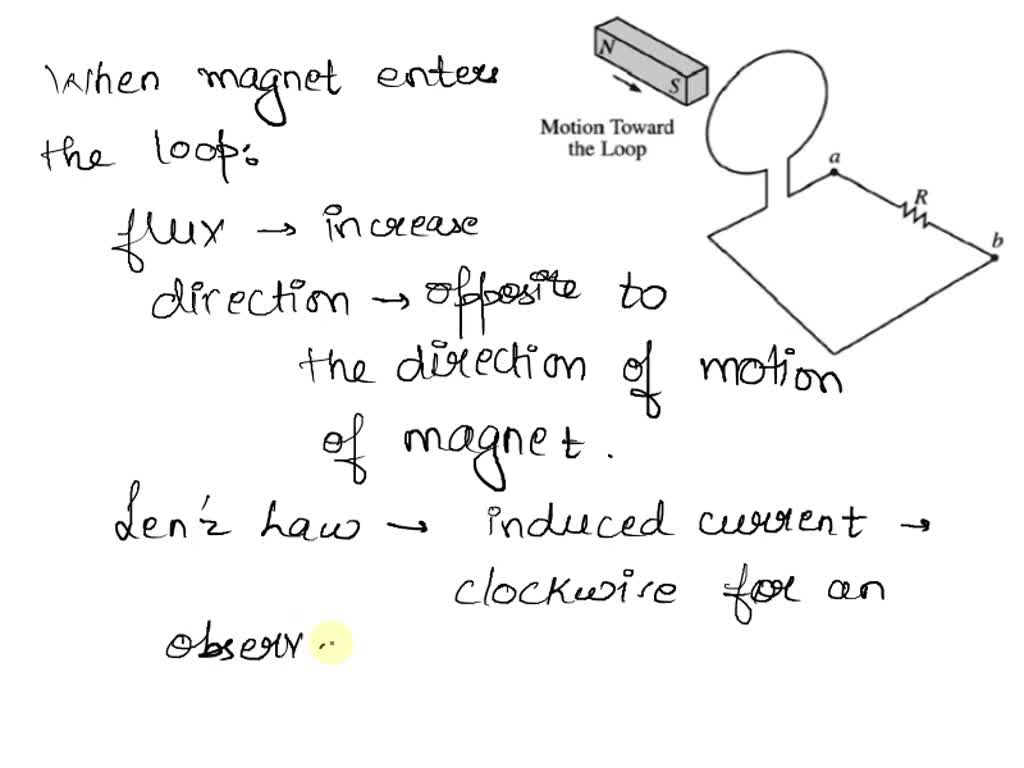 When magnet enters
the loop:
flux → increase
direction → opposite to
the direction of motion
of magnet.
Len'z Law → induced current →
clockwise for an
observr
N
S
Motion Toward
the Loop
a
R
b